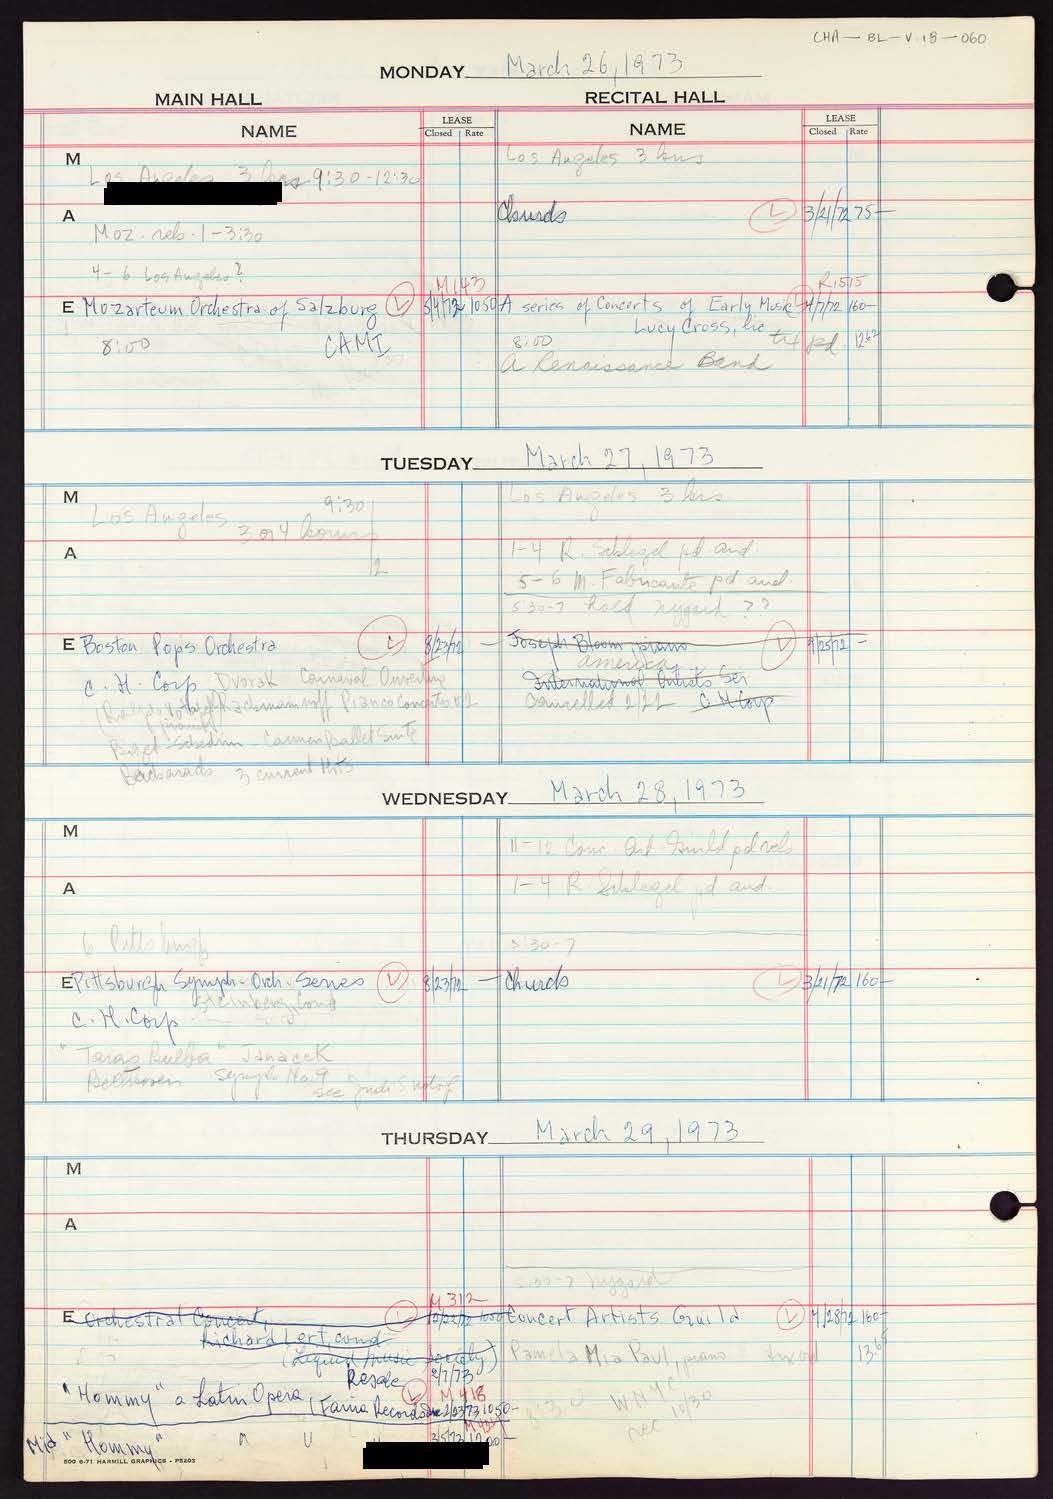 CHA - BL - V.18 - 060
MONDAY March 26, 1973
MAIN HALL
RECITAL HALL
NAME
LEASE
Closed Rate
NAME
LEASE
Closed Rate
M
Los Angeles 3 hrs 9:30-12:30
Los Angeles 3 hrs
A
Moz. reh. 1-3:30
4-6 Los Angeles?
Church 3/21/72 75-
M143
R1515
E Mozarteum Orchestra of Salzburg 1050
8:00
CAMI
A series of Concerts of Early Music 4/7/72 160-
Lucy Cross, lic
8:00
pd.
A Renaissance Band
TUESDAY March 27, 1973
M
Los Angeles 9:30
3 or 4 hours
12
Los Angeles 3 hrs
A
1-4 R. Schlegel pd aud.
5-6 M. Fabricante pd aud.
5:30-7 hold Nygard ??
E Boston Pops Orchestra 8/23/72 -
C. H. Corp Dvorak Carneval Overture
Rachmaninoff Piano Concerto #2
Carmen Ballet Suite
Bacharach 3 current Hits
Joseph Bloom, piano 9/25/72 -
america
International Artists Ser
Cancelled 2/22 C H Corp
WEDNESDAY March 28, 1973
M
11-12 Conc. Art. Guild pd reh
A
1-4 R. Schlegel pd aud.
6 Pittsburgh
5:30-7
E Pittsburgh Symph. Orch. Series 8/23/72 -
Steinberg, Cond
C. H. Corp
"Taras Bulba" Janacek
Beethoven Symph No. 9
Church 3/21/72 160-
THURSDAY March 29, 1973
M
A
5:30-7 Nygard
M 312
E Orchestral Concert,
Richard Lert, cond
Resale 2/7/73
"Hommy" a Latin Opera (Fania Records Inc 2/23/73 1050-
M 418
Concert Artists Guild 4/28/72 160-
Pamela Mia Paul, piano
8:30
WNYC
rec 10/30
Mid "Hommy" " " " 3/5/73 1200-
500 6-71 HARMILL GRAPHICS - P5203